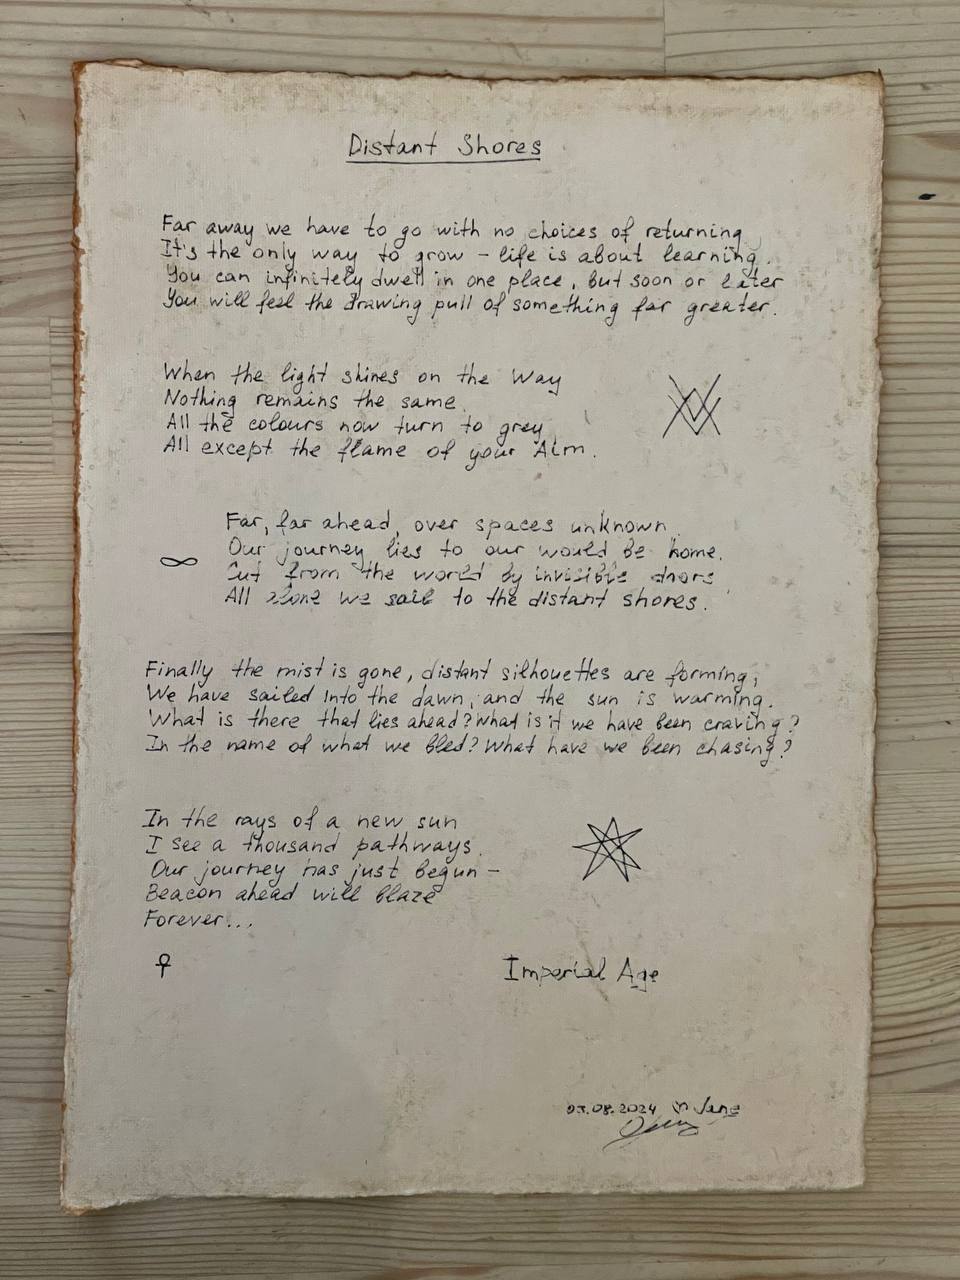 Distant Shores
Far away we have to go with no choices of returning
It's the only way to grow – life is about learning.
You can infinitely dwell in one place, but soon or later
You will feel the drawing pull of something far greater.
When the light shines on the Way
Nothing remains the same.
All the colours now turn to grey
All except the flame of your Aim.
Far, far ahead, over spaces unknown
Our journey lies to our would be home.
Cut from the world by invisible doors
All alone we sail to the distant shores.
Finally the mist is gone, distant silhouettes are forming;
We have sailed into the dawn, and the sun is warming.
What is there that lies ahead? What is it we have been craving?
In the name of what we bled? What have we been chasing?
In the rays of a new sun
I see a thousand pathways.
Our journey has just begun –
Beacon ahead will blaze
Forever...
Imperial Age
.08.2024 Jane